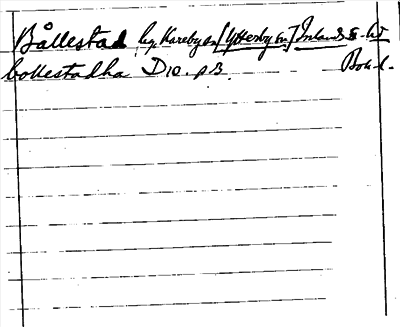 Bållestad by, Kareby sn [Ytterby sn] Inlands S. hd
bollestadha DN10. p3. Bohl.